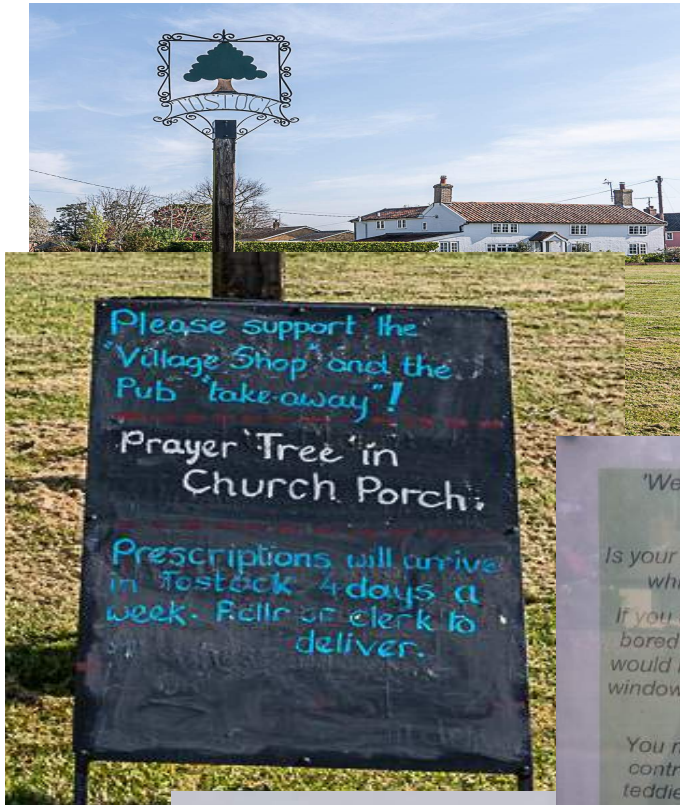 TOSTOCK
Please support the
"Village Shop" and the
Pub "take-away"!
Prayer 'Tree' in
Church Porch.
Prescriptions will arrive
in Tostock 4 days a
week. or clerk to
deliver.
'We
Is your
If you
bored
would
window
You
contr
teddie